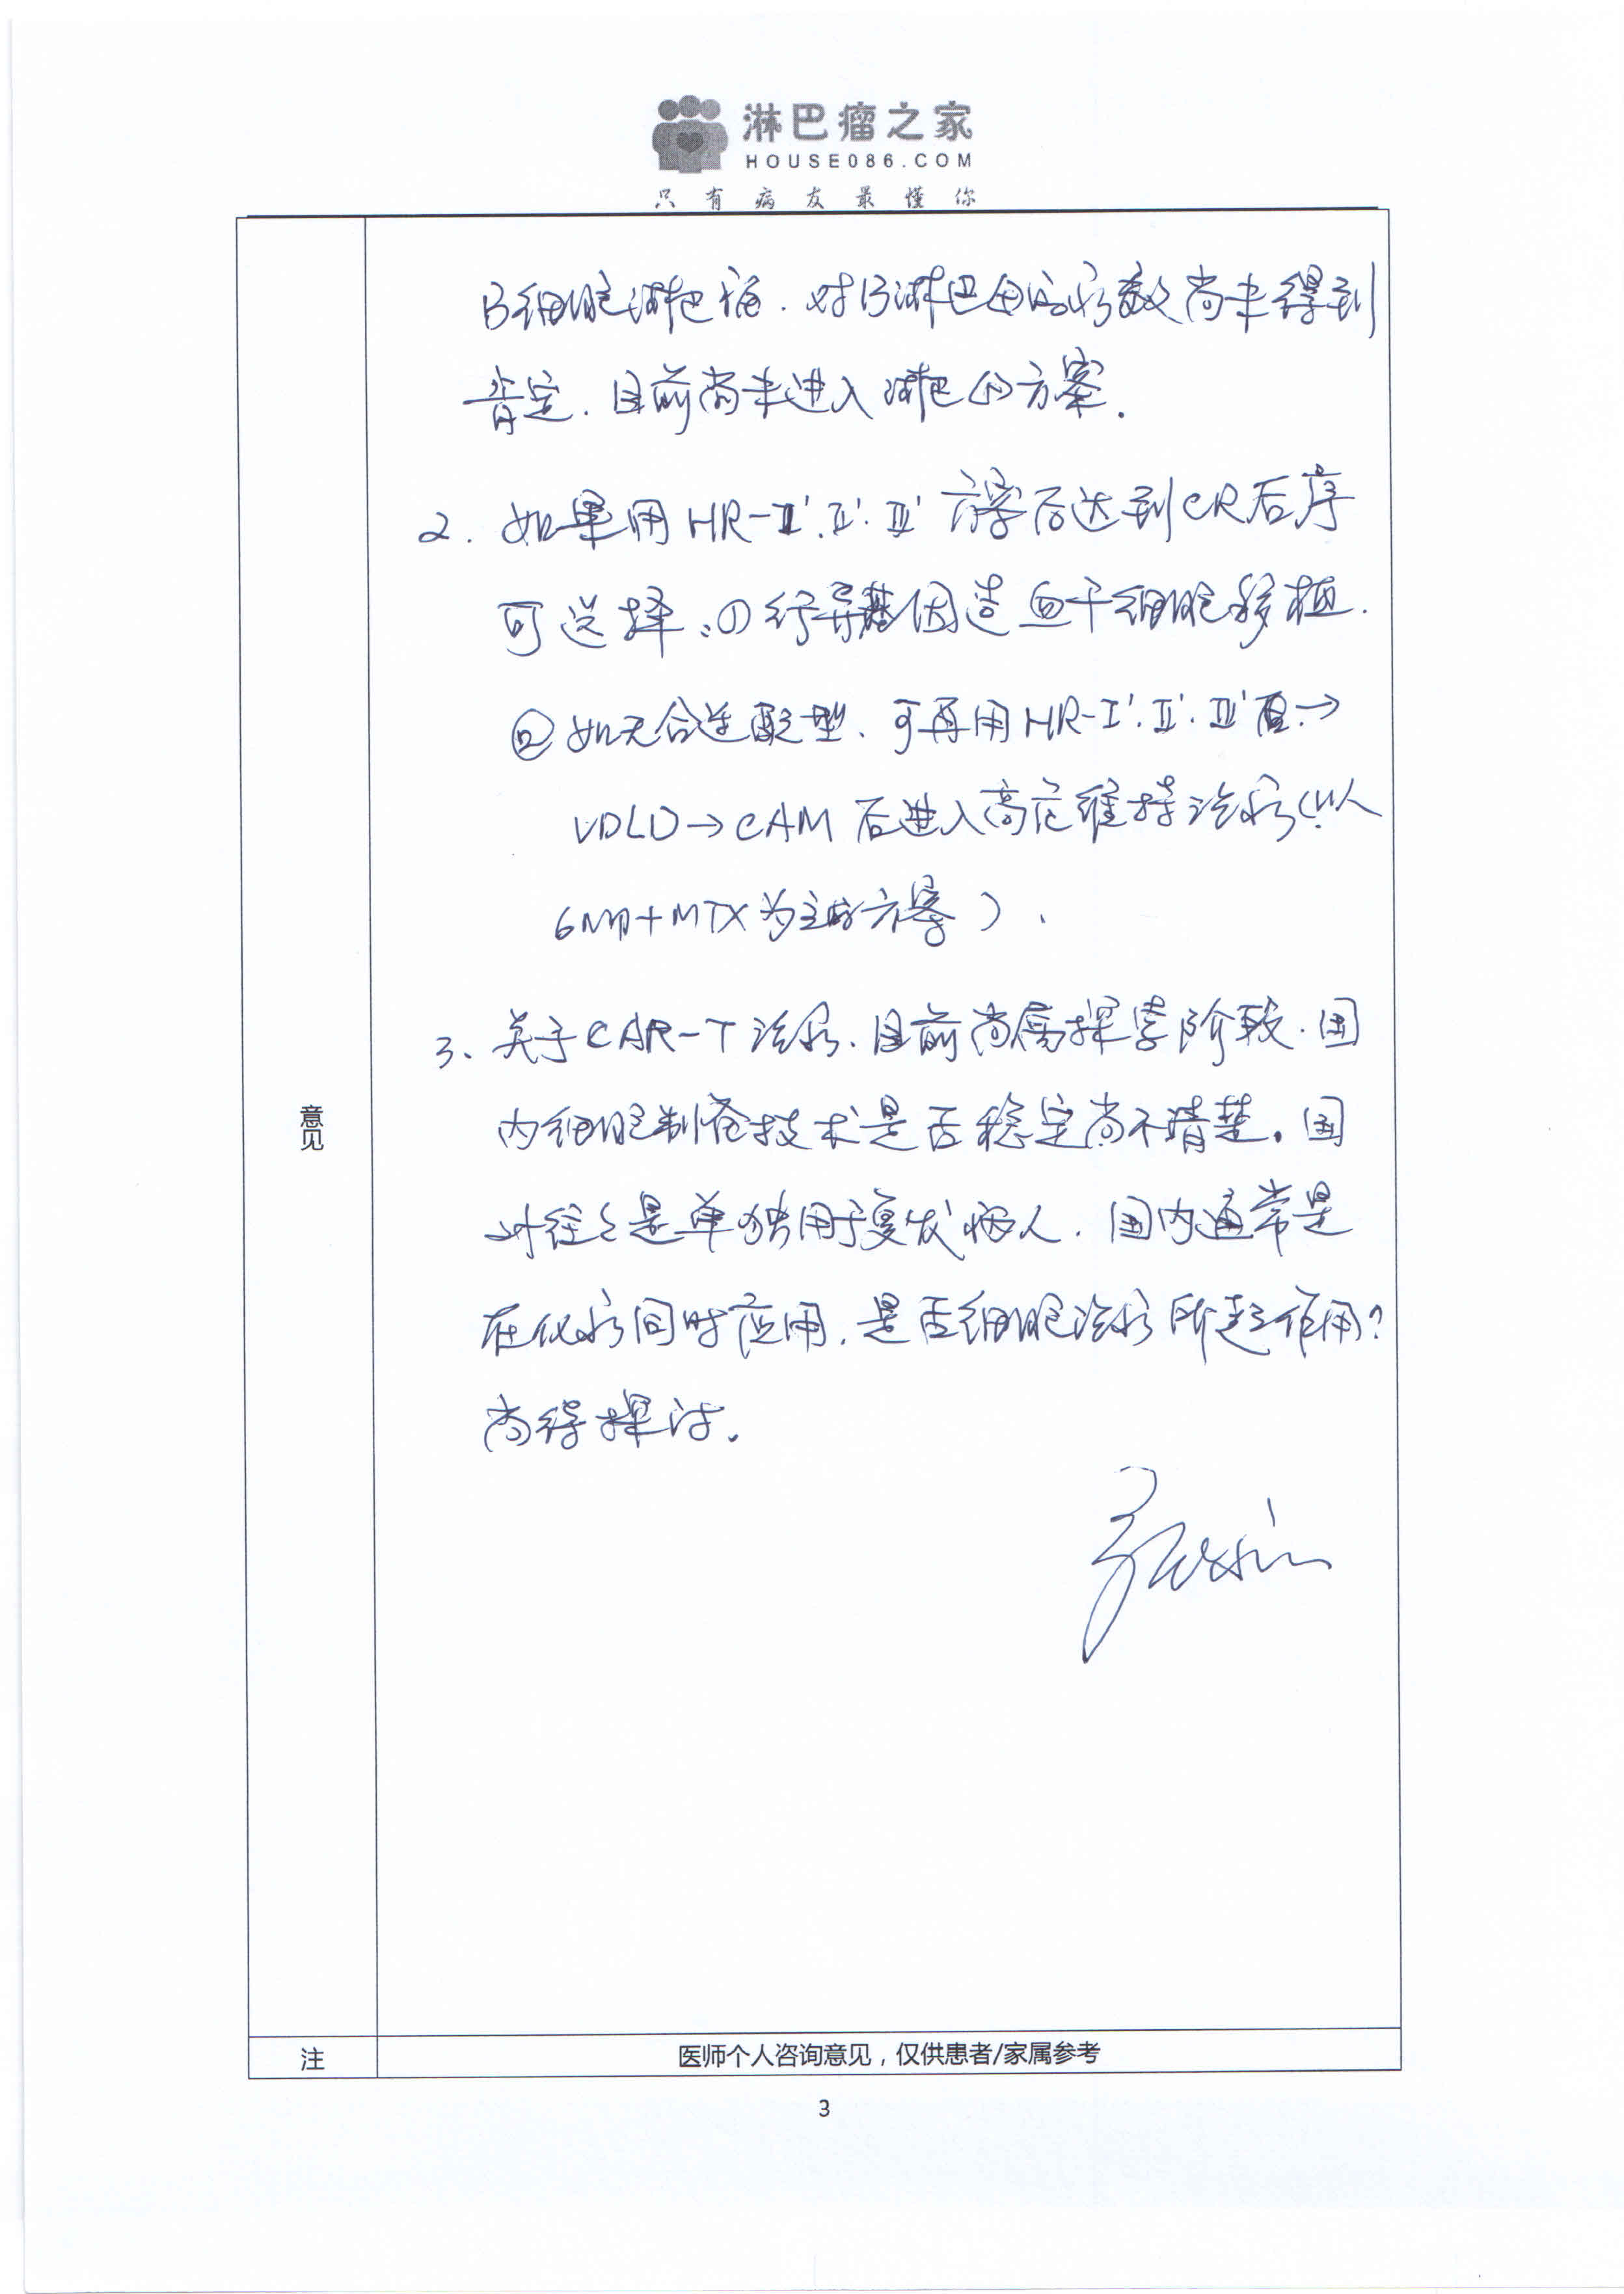 淋巴瘤之家
HOUSE086.COM
只有病友最懂你
B细胞淋巴瘤.对B淋巴母的疗效尚未得到
肯定.目前尚未进入淋巴的方案.
2.如果用HR-Ⅰ'.Ⅱ'.Ⅲ'方案后达到CR后序
可选择:①行异基因造血干细胞移植.
②如无合适配型、可再用HR-Ⅰ'.Ⅱ'.Ⅲ'后→
VDLD→CAM后进入高危维持治疗(以
6MP+MTX为主的方案).
3、关于CAR-T治疗.目前尚属探索阶段.国
内细胞制备技术是否稳定尚不清楚.国
外往往是单独用于复发病人.国内通常是
在化疗同时应用.是否细胞治疗所起作用?
尚待探讨.
意见
注
医师个人咨询意见,仅供患者/家属参考
3